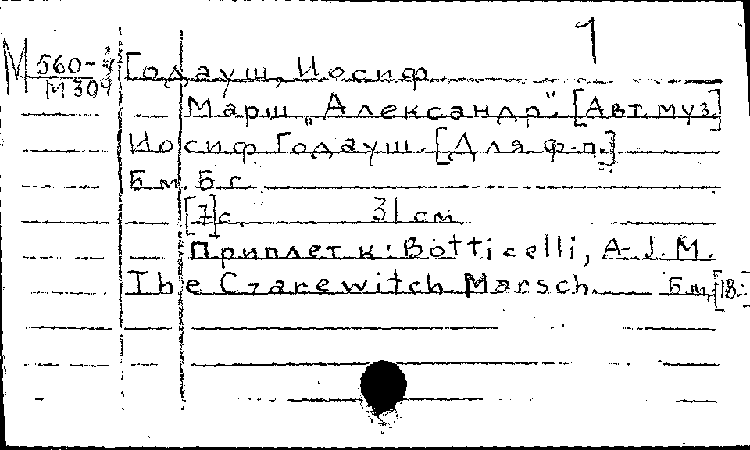 1
М 560-8 Годауш, Иосиф
М 309
Марш „Александр". [Авт. муз.]
Иосиф Годауш. [Для ф-п.]
Б. м. Б. г.
[7] с. 31 см
Приплет к: Botticelli, A-J. M.
The Czarewitch Marsch. Б. м, [18